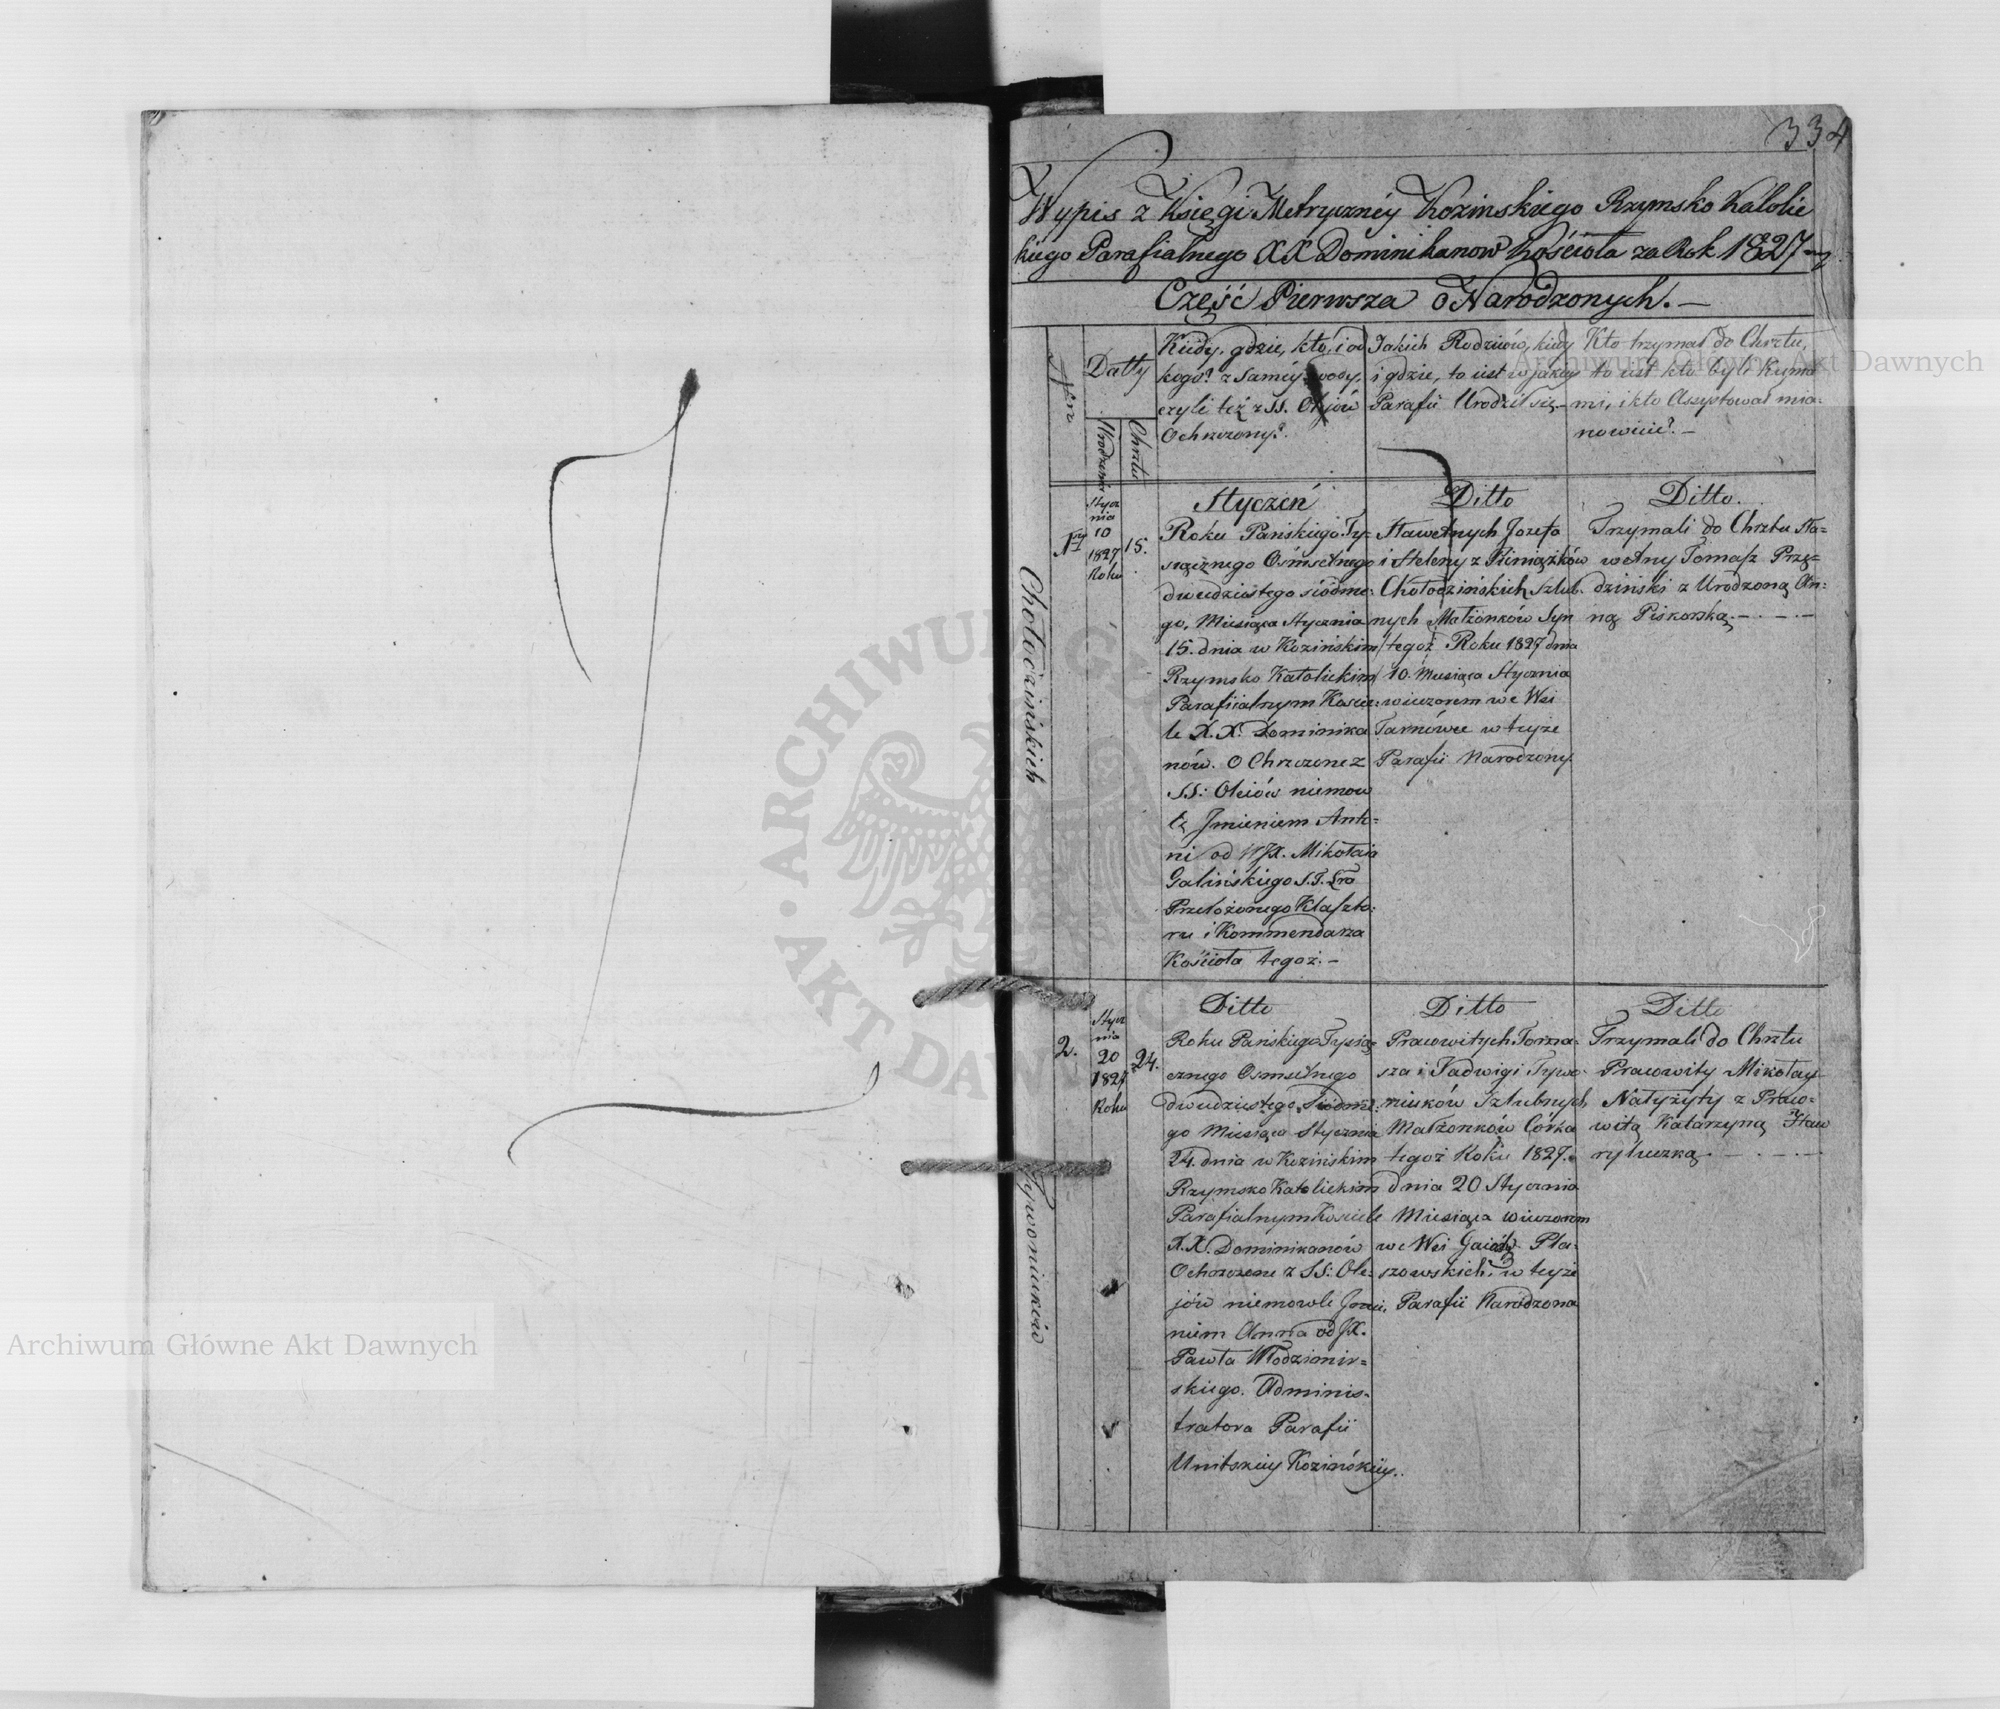 334
Wypis z Księgi Metryczney Kozinskiego Rzymsko Katolic
kiego Parafialnego XX Dominikanow Kościoła za Rok 1827
Część Pierwsza o Narodzonych. —
Nrn
Datty
Urodzenia
Chrztu
Kiedy, gdzie, kto, i od
kogo? z Saméy wody,
czyli też z SS. Olejów
Ochrzczony?
Jakich Rodziców, kiedy
i gdzie, to iest w jakiey
Parafii Urodził się. —
Kto trzymał do Chrztu,
to iest kto byli Kuma
mi, i kto Assystował mia=
nowicie? —
Chołodzińskich
1szy
Stycz
nia
10
1827
Roku
15.
Styczeń
Roku Pańskiego Ty=
siącznego Ośmsetnego
dwudziestego siódme=
go, Miesiąca Stycznia
15. dnia w Kozińskim
Rzymsko Katolickim
Parafiialnym Koscie=
le X.X. Dominika
nów. O Chrzczone z
SS: Oleiów niemow
lę Jmieniem Anto=
ni od WJX. Mikołaia
Galińskiego S.T. Lra
Przełożonego Klaszto=
ru i Kommendarza
Kościoła tegoż. —
Ditto
Sławetnych Jozefa
i Heleny z Pieniążków
Chołodzińskich Szlub=
nych Małżonków Syn
tegoż Roku 1827 dnia
10. Miesiąca Stycznia
wieczorem we Wsi
Tarnówce w teyże
Parafii Narodzony
Ditto.
Trzymali do Chrztu Sła=
wetny Tomasz Przę=
dziński z Urodzoną An=
ną Piskorską. — . — . —
Tywoniuków
2.
Stycz
nia
20
1827.
Roku
24.
Ditto
Roku Pańskiego Tysią
cznego Osmsetnego
dwudziestego Siódme=
go Miesiąca Stycznia
24. dnia w Kozińskim
Rzymsko Katolickim
Parafialnym Kosciele
X.X. Dominikanów
Ochrzczone z SS: Ole=
jów niemowle Jmie=
niem Anna od JX.
Pawła Włodzimir=
skiego. Adminis=
tratora Parafii
Unitskiey Kozińskiey.
Ditto
Pracowitych Toma=
sza i Jadwigi Tywo=
niuków Szlubnych
Małżonków Córka
tegoż Roku 1827.
dnia 20 Stycznia
Miesiąca wieczorem
we Wsi Pła=
szowskich. w teyże
Parafii Narodzona
Ditto
Trzymali do Chrztu
Pracowity Mikołay
Natyżyty z Praco=
witą Katarzyną Haw
ryluczką. — . — . —
Archiwum Główne Akt Dawnych
Archiwum Główne Akt Dawnych